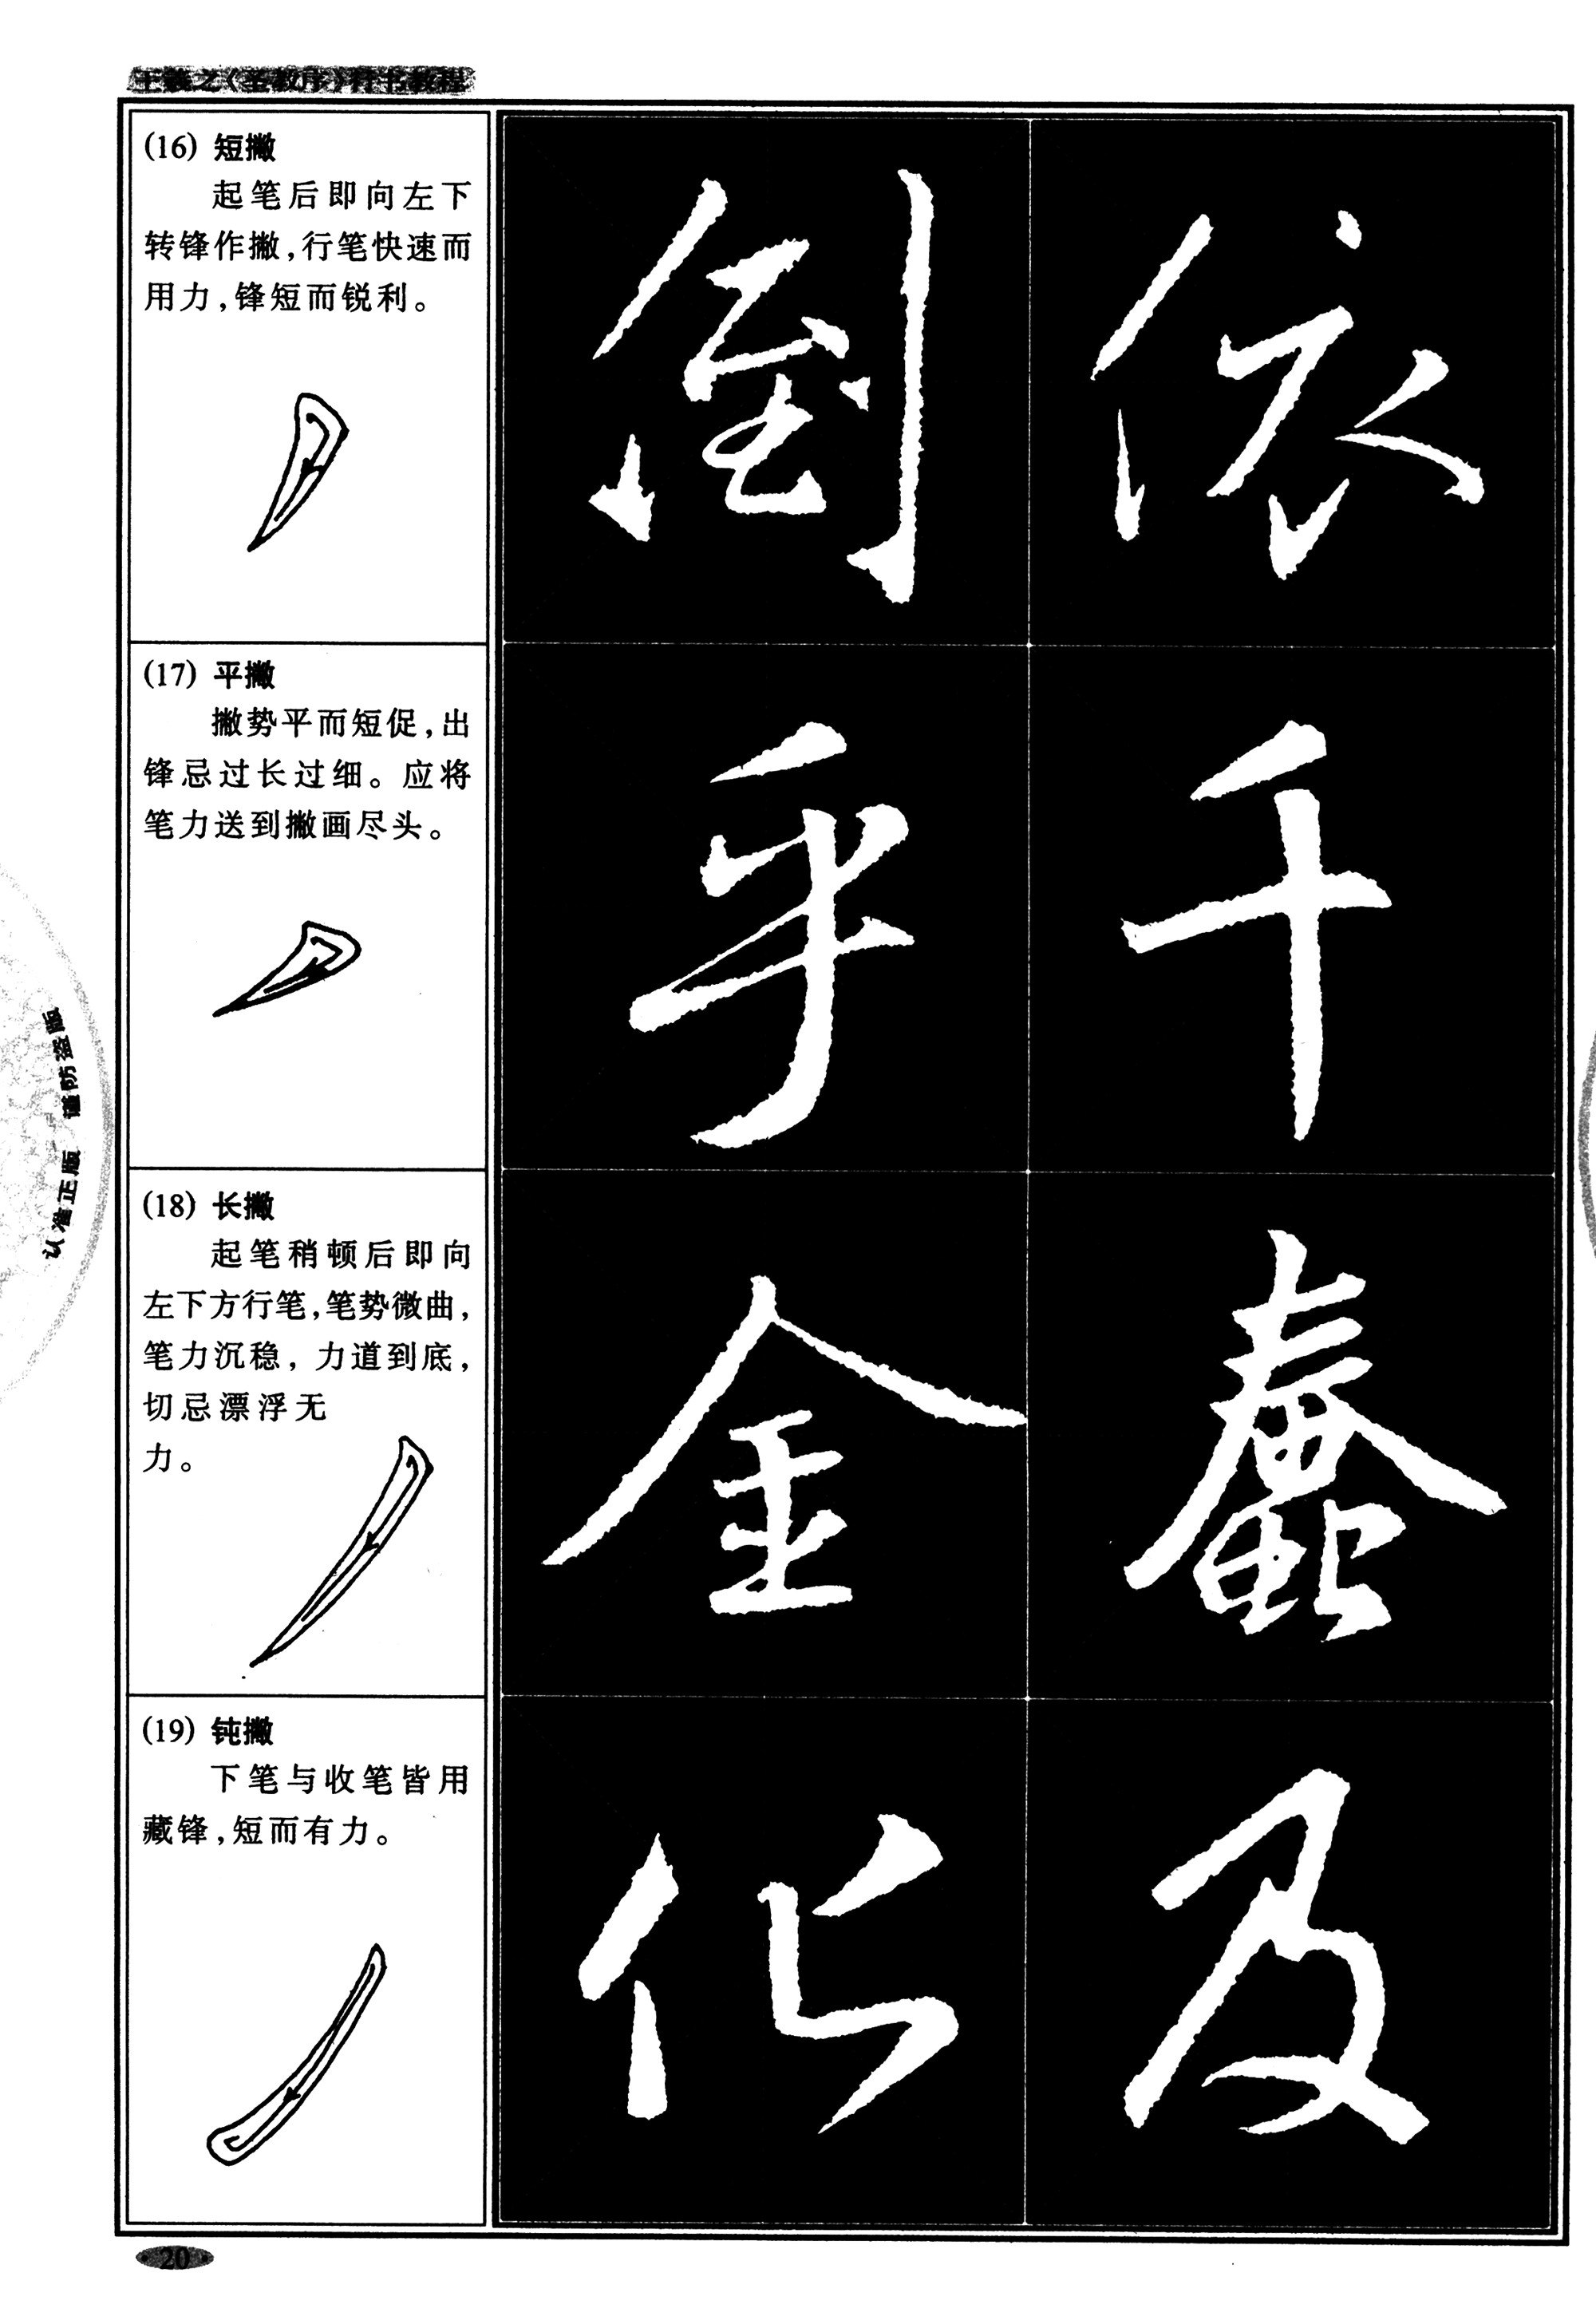 王羲之《圣教序》行书教程
(16) 短撇
起笔后即向左下
转锋作撇，行笔快速而
用力，锋短而锐利。
倒 依
(17) 平撇
撇势平而短促，出
锋忌过长过细。应将
笔力送到撇画尽头。
乎 千
(18) 长撇
起笔稍顿后即向
左下方行笔，笔势微曲，
笔力沉稳，力道到底，
切忌漂浮无
力。
金 蠢
(19) 钝撇
下笔与收笔皆用
藏锋，短而有力。
化 及
认准正版 谨防盗版
·20·